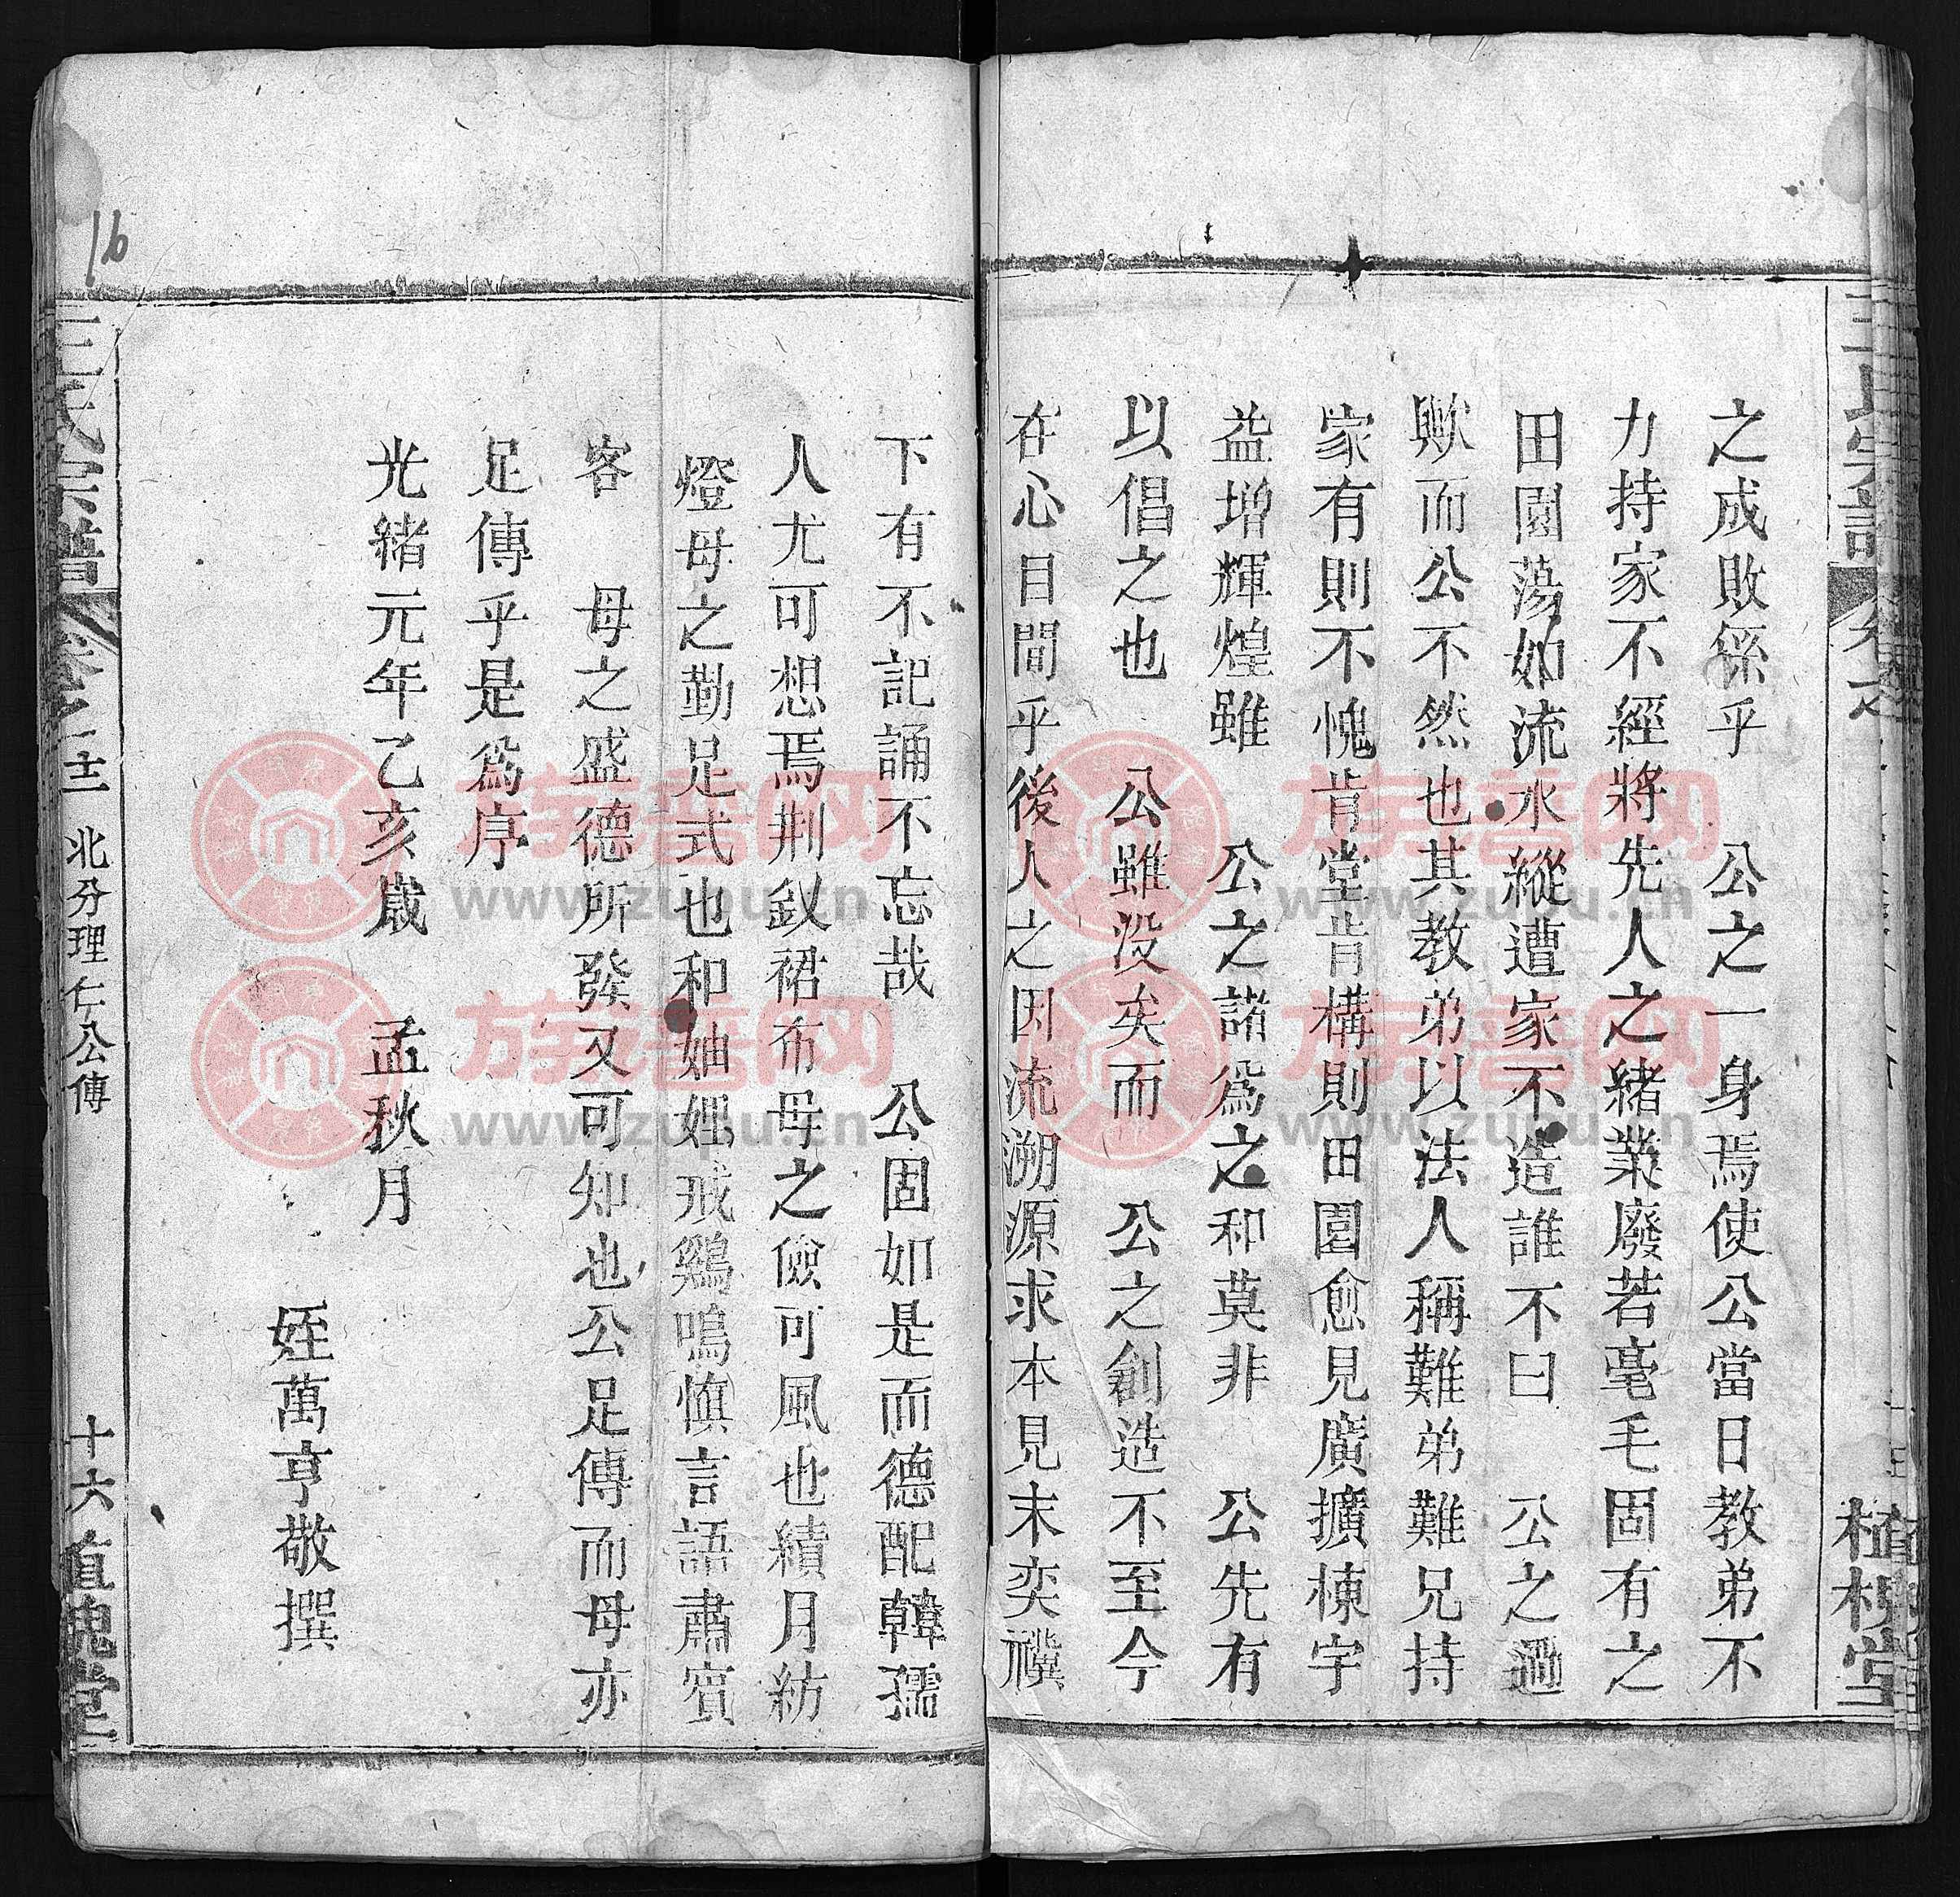 之成敗係乎　公之一身焉使公當日教弟不
力持家不經將先人之緒業廢若毫毛固有之
田園蕩如流水縱遭家不造誰不曰　公之過
歟而公不然也其教弟以法人稱難弟難兄持
家有則不愧肯堂肯構則田園愈見廣擴棟宇
益增輝煌雖　公之諸爲之和莫非　公先有
以倡之也　公雖没矣而　公之創造不至今
在心目間乎後人之因流溯源求本見末奕禩
下有不記誦不忘哉　公固如是而德配韓孺
人尤可想焉荆釵裙布母之儉可風也績月紡
燈母之勤足式也和妯娌戒鷄鳴慎言語肅賓
客　母之盛德所發又可知也公足傳而母亦
足傳乎是爲序
光緒元年乙亥歲　孟秋月
姪萬亨敬撰
王氏宗譜　卷之二十　北分理仁公傳　十六　植槐堂
王氏宗譜　卷之　植槐堂
16
族譜网
www.zupu.cn
族譜网
www.zupu.cn
族譜网
www.zupu.cn
族譜网
www.zupu.cn